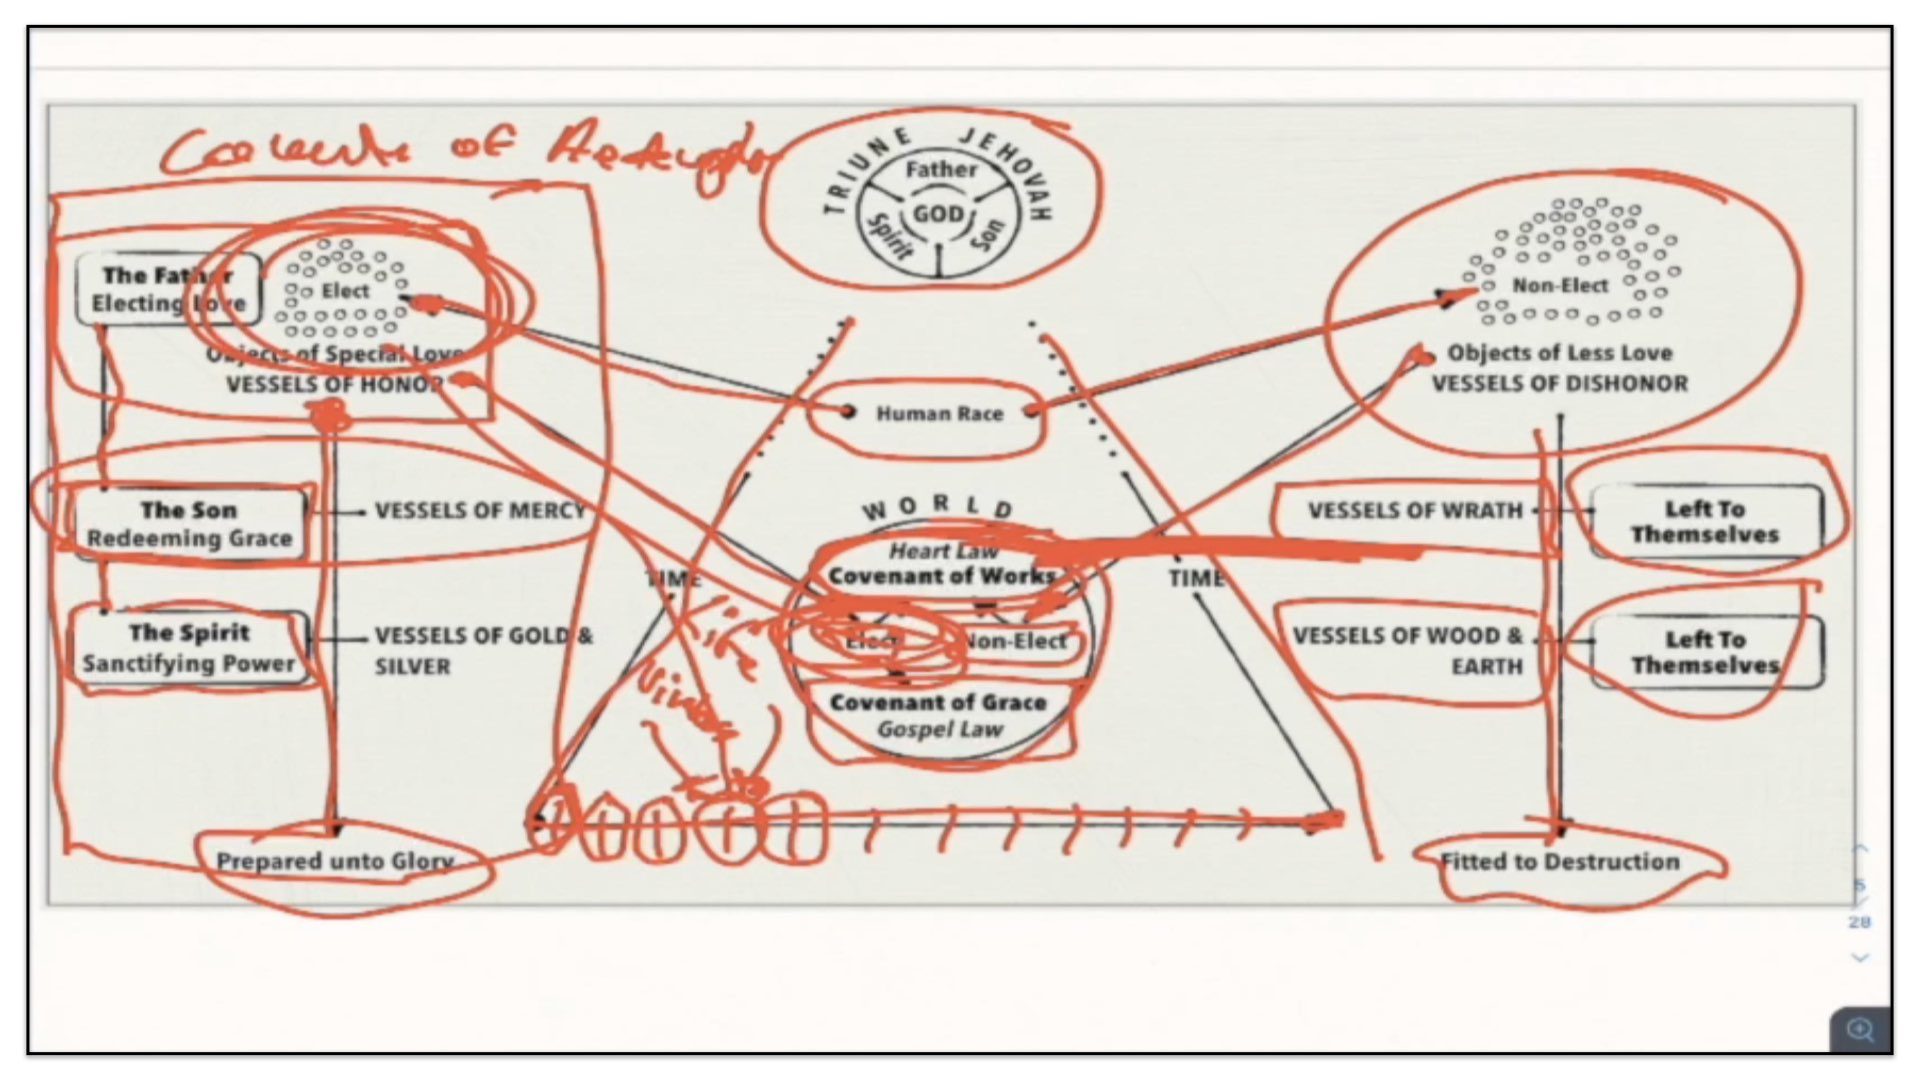 Covenant of Redemption
TRIUNE JEHOVAH
Father
GOD
Spirit
Son
The Father
Electing Love
Elect
Objects of Special Love
VESSELS OF HONOR
Non-Elect
Objects of Less Love
VESSELS OF DISHONOR
Human Race
The Son
Redeeming Grace
VESSELS OF MERCY
WORLD
Heart Law
Covenant of Works
Elect
Non-Elect
Covenant of Grace
Gospel Law
TIME
TIME
VESSELS OF WRATH
Left To
Themselves
The Spirit
Sanctifying Power
VESSELS OF GOLD &
SILVER
VESSELS OF WOOD &
EARTH
Left To
Themselves
Prepared unto Glory
Fitted to Destruction
5
28